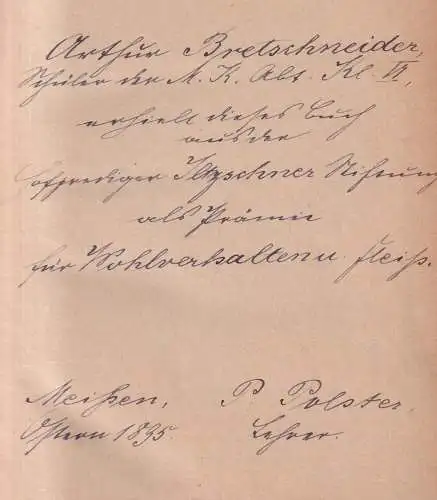 Arthur Bretschneider,
Schüler der M. K. Abt. Kl. VI,
erhielt dieses Buch
aus der
Hofprediger Stiftung
als Prämie
für Wohlverhalten u. Fleiß.
Meißen,
Ostern 1895.
P. Polster,
Lehrer.